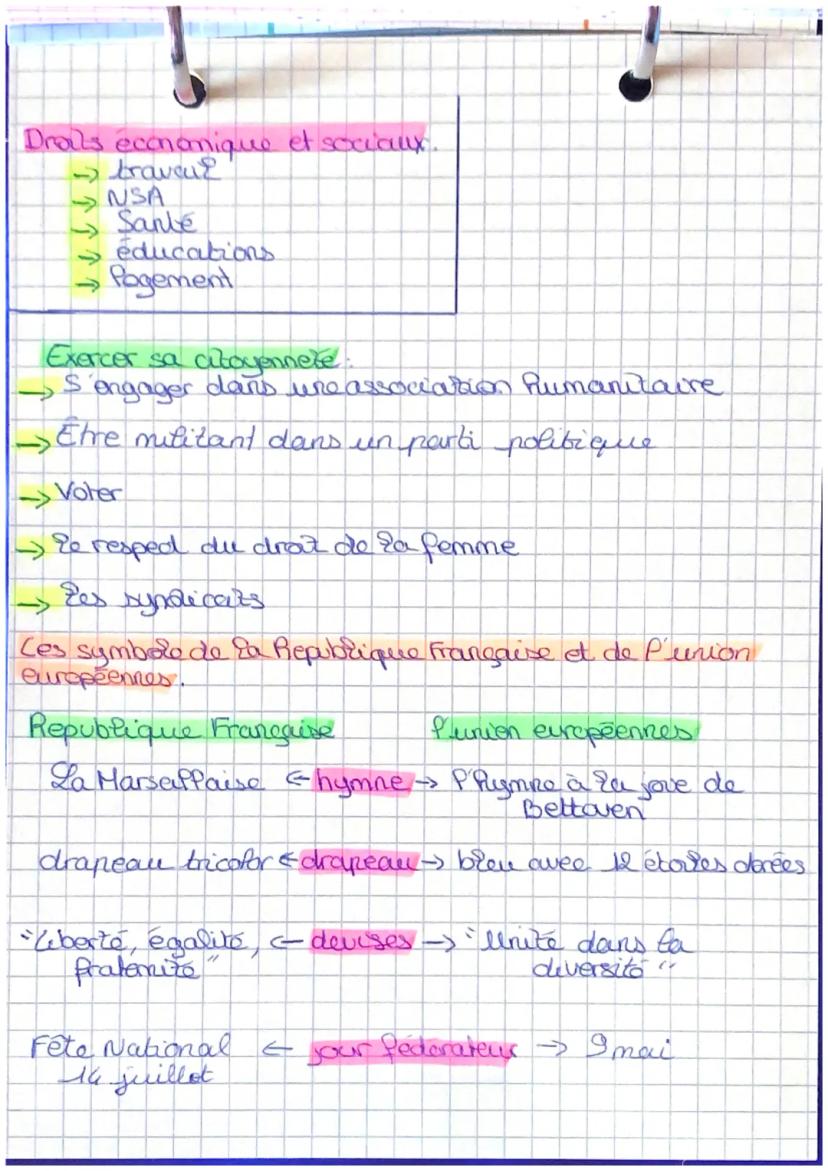 Droits économique et sociaux.
→ travail
→ NSA
→ Santé
→ éducations
→ logement
Exercer sa citoyenneté :
→ S'engager dans une association humanitaire
→ Être militant dans un parti politique
→ Voter
→ le respect du droit de la femme
→ les syndicats
Les symbole de la Republique Française et de l'union
européennes.
Republique Française l'union européennes
La Marseillaise ← hymne → l'hymne à la joue de
Bettoven
drapeau tricolor ← drapeau → bleu avec 12 étoiles dorées
"Liberté, égalité, ← devises → "Unité dans la
fraternité" diversité"
Fête National ← jour fédérateur → 9 mai
14 juillet